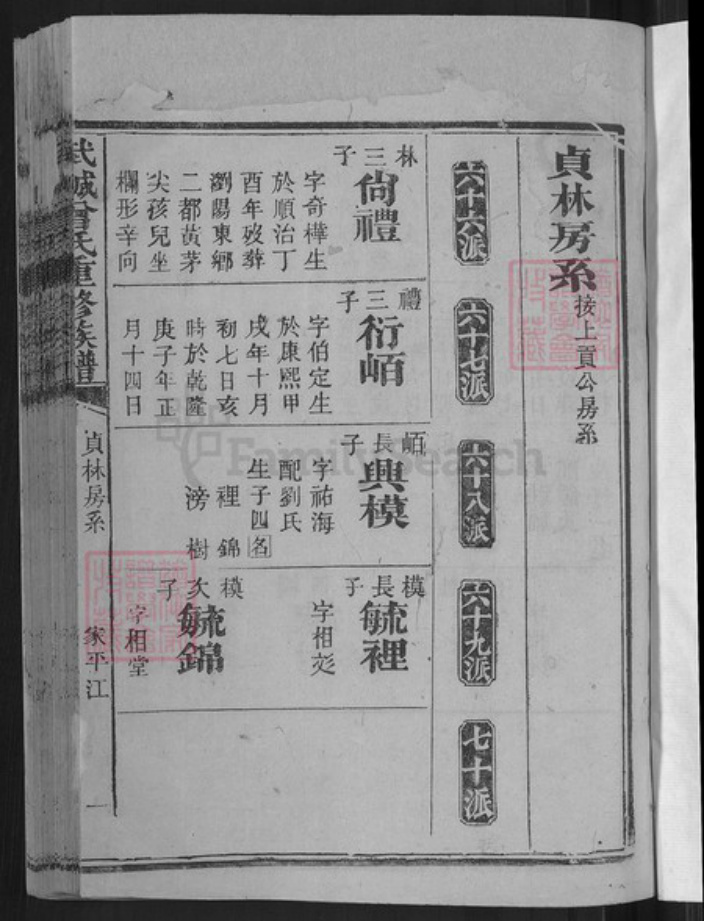 貞林房系 接上貢公房系
六十六派
六十七派
六十八派
六十九派
七十派
林三子
尙禮
字奇樺生
於順治丁
酉年歿葬
瀏陽東鄉
二都黃茅
尖孩兒坐
欄形辛向
禮三子
衍㟜
字伯定生
於康熙甲
戌年十月
初七日亥
時於乾隆
庚子年正
月十四日
㟜長子
興模
字祐海
配劉氏
生子四名
裡 錦
滂 樹
模長子
毓裡
字相
模次子
毓錦
字相堂
武城曾氏重修族譜
貞林房系
家平江
一
FamilySearch